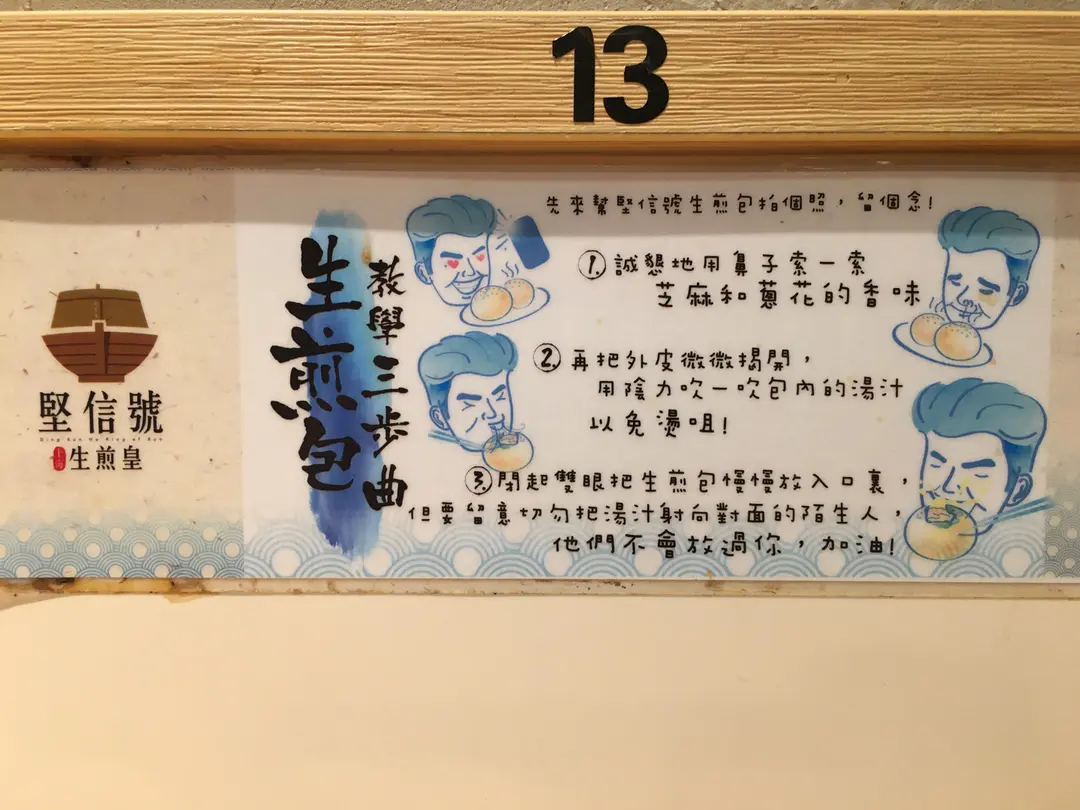 13
堅信號
生煎皇
生煎包
教學三步曲
先來幫堅信號生煎包拍個照，留個念！
1. 誠懇地用鼻子索一索
芝麻和蔥花的香味
2. 再把外皮微微揭開，
用陰力吹一吹包內的湯汁
以免燙咀！
3. 閉起雙眼把生煎包慢慢放入口裏，
但要留意切勿把湯汁射向對面的陌生人，
他們不會放過你，加油！